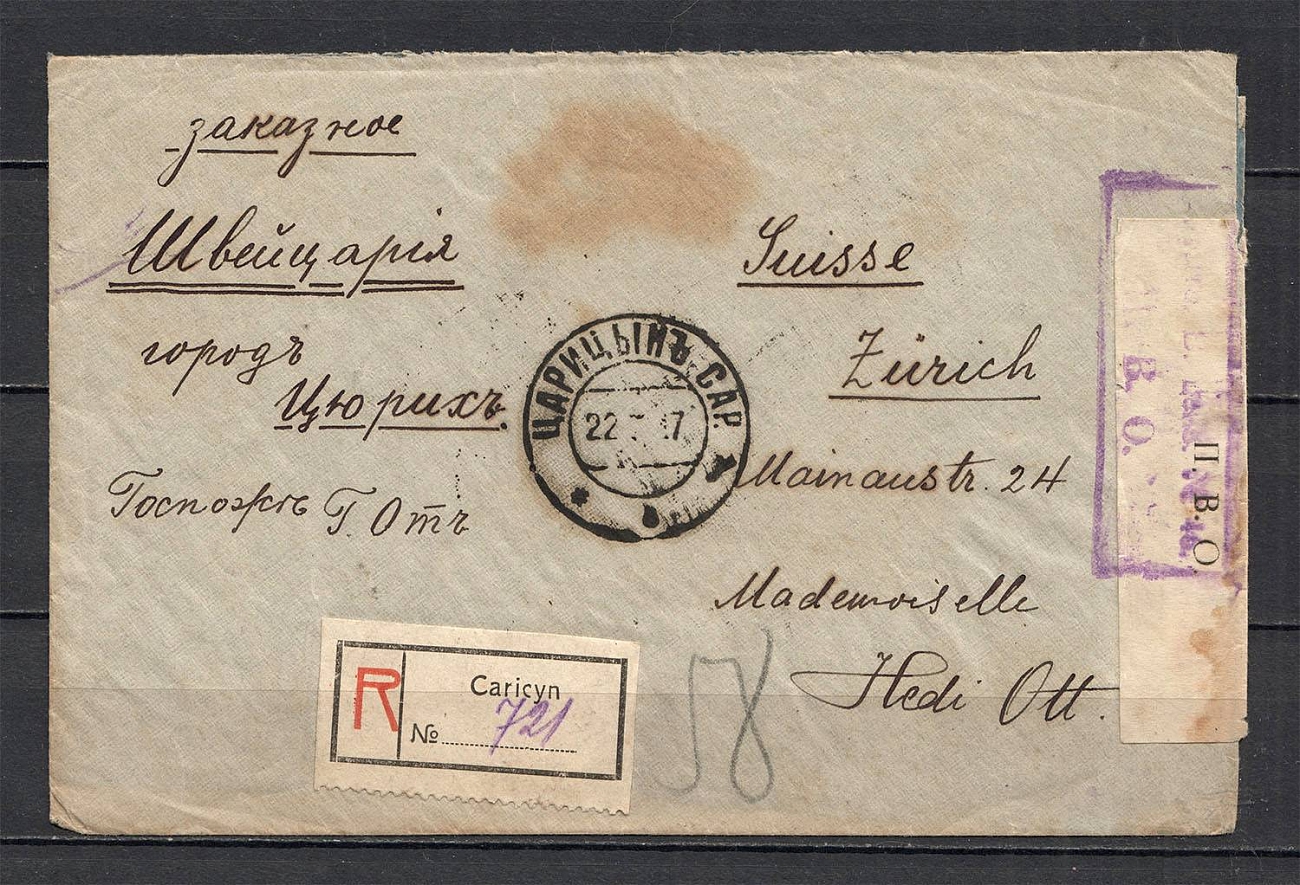 заказное
Швейцарія
городъ
Цюрихъ.
Госпожѣ Г. Отъ
Suisse
Zürich
Mainaustr. 24
Mademoiselle
Hedi Ott.
ЦАРИЦЫНЪ САР.
22 7
R
Caricyn
№ 721
58
П. В. О.
В. О.